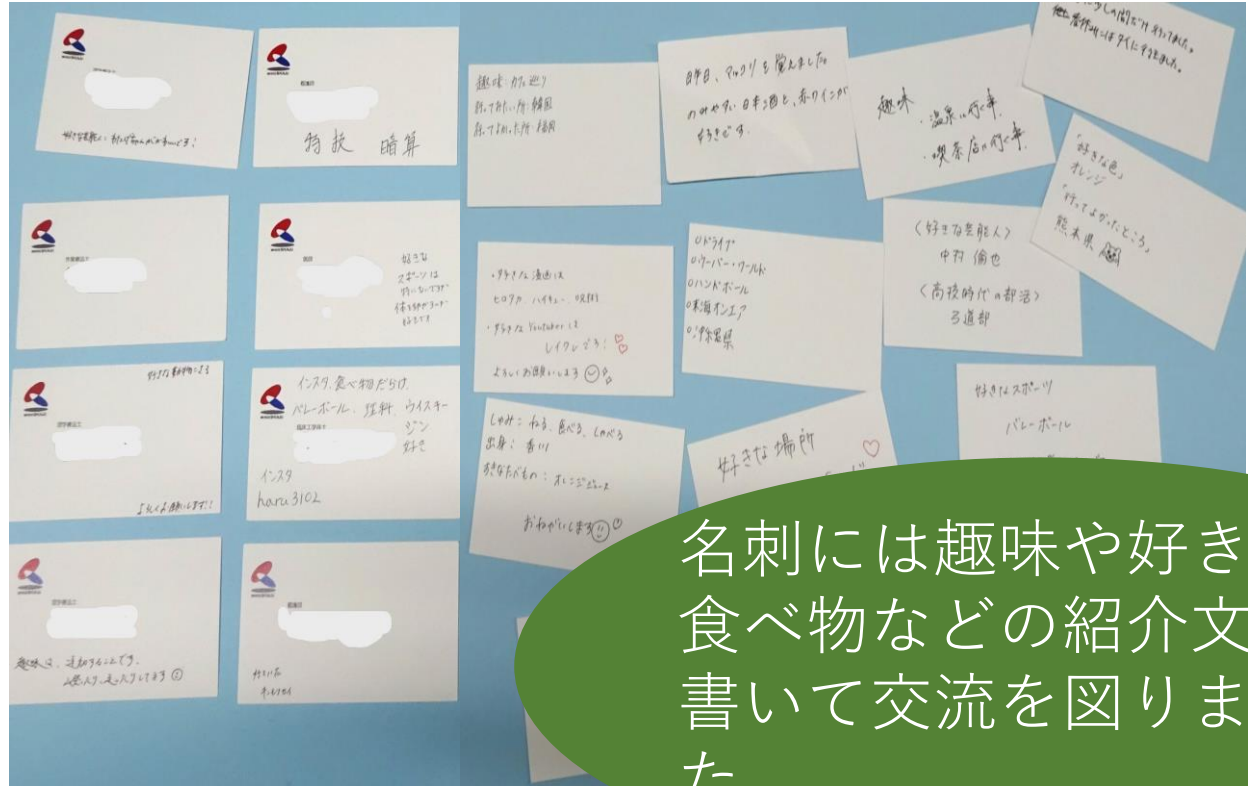 特技 暗算
好きな
スポーツは
好きです
好きな動物は
よろしくお願いします!!
インスタ 食べ物だらけ
バレーボール、料料、ウイスキー
ジン
好き
インスタ
haru3102
趣味は、運動することです。
趣味:カフェ巡り
行ってみたい所:韓国
行ってよかった所:福岡
昨日、マッコリを覚えました。
のみやすい日本酒と、赤ワインが
好きです。
趣味
・温泉に行く事
・喫茶店に行く事
「好きな色」
オレンジ
「行ってよかったところ」
熊本県
・好きな漫画は
ヒロアカ ハイキュー 呪術
・好きな Youtuber は
レイクレです!
よろしくお願いします
○ドライブ
○ウーバー・ワールド
○ハンドボール
○東海オンエア
○沖縄県
〈好きな芸能人〉
中村 倫也
〈高校時代の部活〉
弓道部
しゅみ:ねる、食べる、しゃべる
出身:香川
好きなたべもの:オレンジジュース
おねがいします
好きな場所
好きなスポーツ
バレーボール
名刺には趣味や好き
食べ物などの紹介文
書いて交流を図りま
た